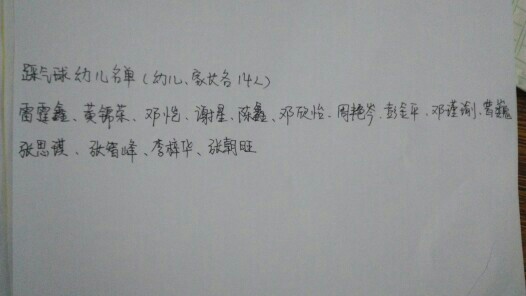 踩气球幼儿名单(幼儿、家长各14人)
雷霆鑫、黄锦荣、邓恺、谢星、陈鑫、邓欣怡、周艳岑、彭金平、邓瑾瑜、曾
张思谟、张智峰、李梓华、张朝旺